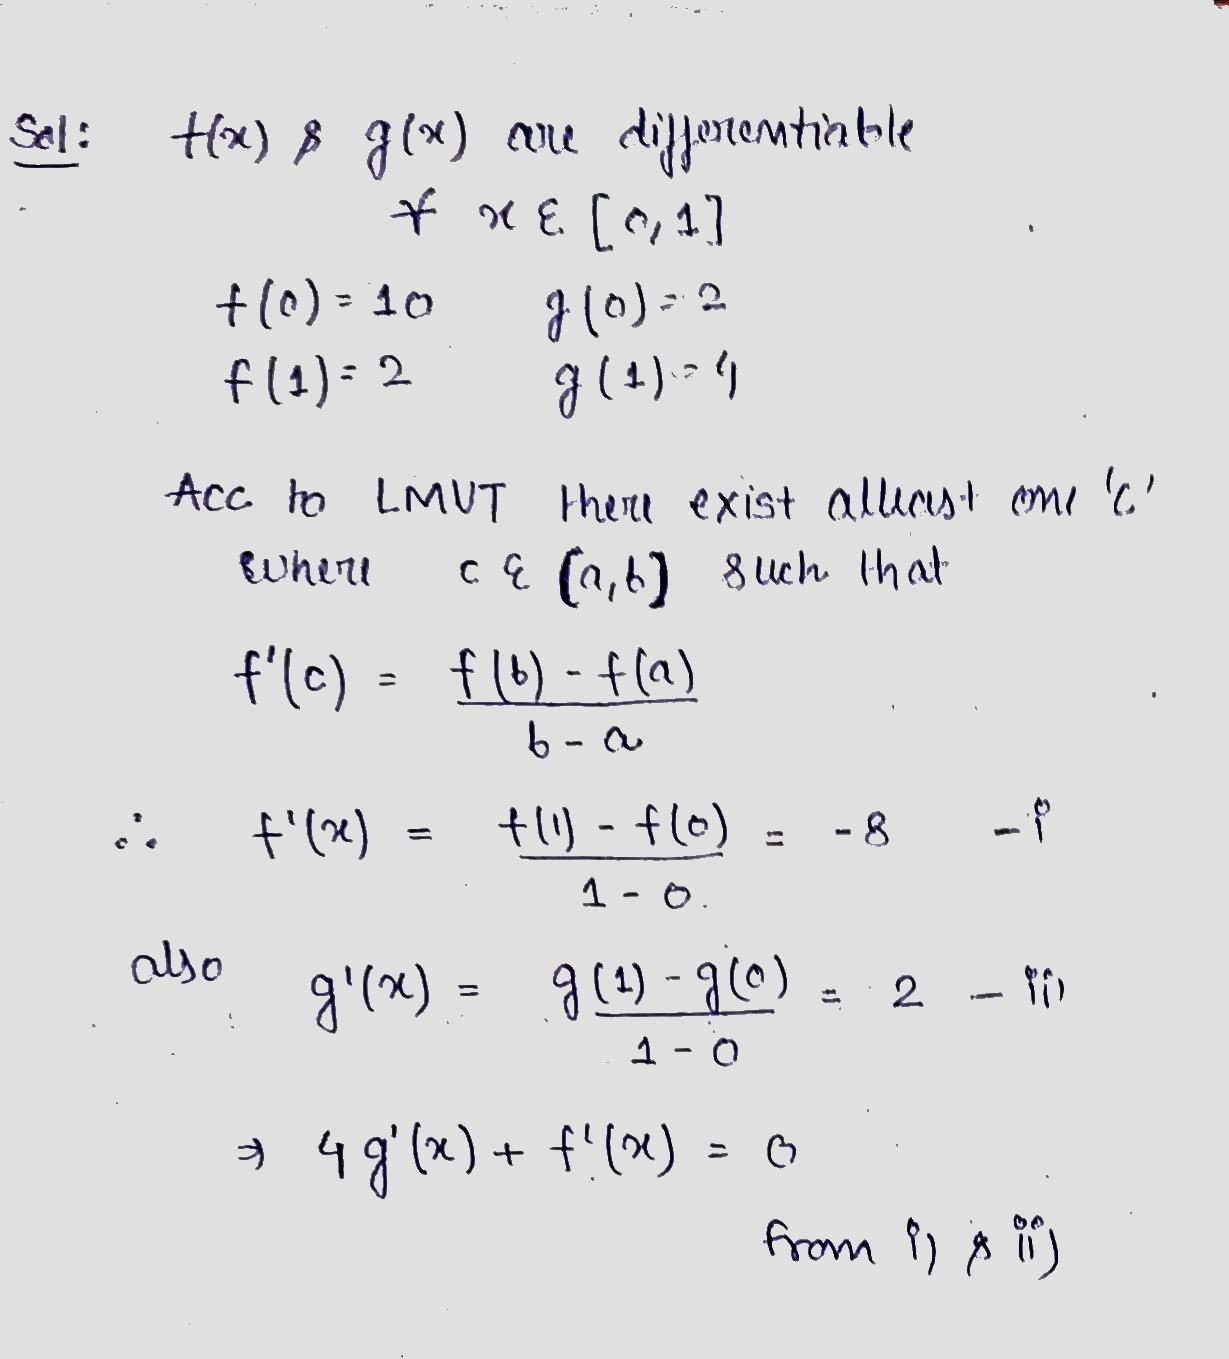 Sol: f(x) & g(x) are differentiable
∀ x ε [0, 1]
f(0) = 10 g(0) = 2
f(1) = 2 g(1) = 4
Acc to LMVT there exist atleast one 'c'
where c ε (a, b] such that
f'(c) = f(b) - f(a)
b - a
∴ f'(x) = f(1) - f(0) = -8 - i
1 - 0.
also g'(x) = g(1) - g(0) = 2 - ii)
1 - 0
⇒ 4g'(x) + f'(x) = 0
from i) & ii)